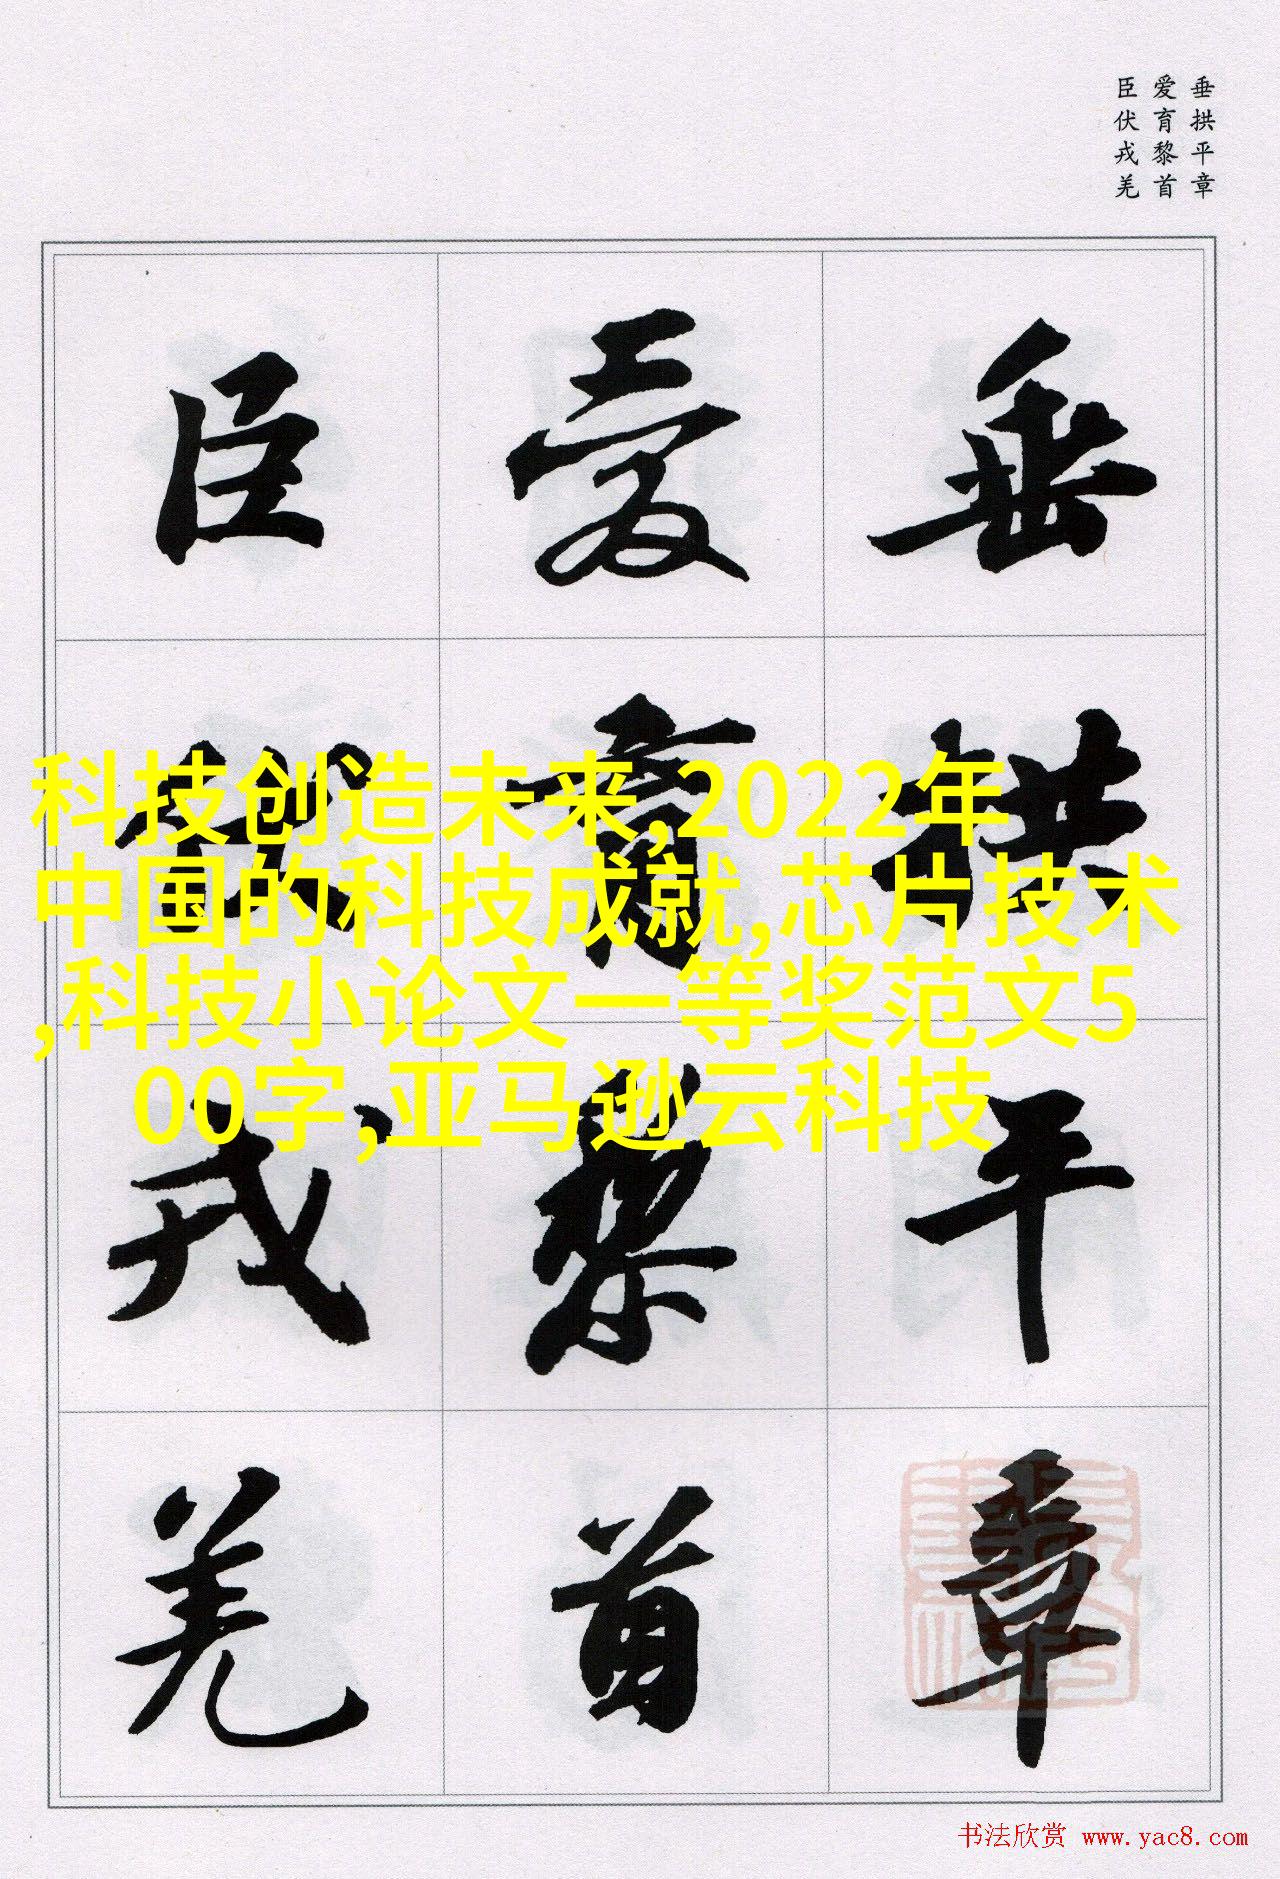 垂拱平章
爱育黎首
臣伏戎羌
垂拱平章
爱育黎首
臣伏戎羌
科技创造未来,2022年
中国的科技成就,芯片技术
,科技小论文一等奖范文5
00字,亚马逊云科技
书法欣赏 www.yac8.com